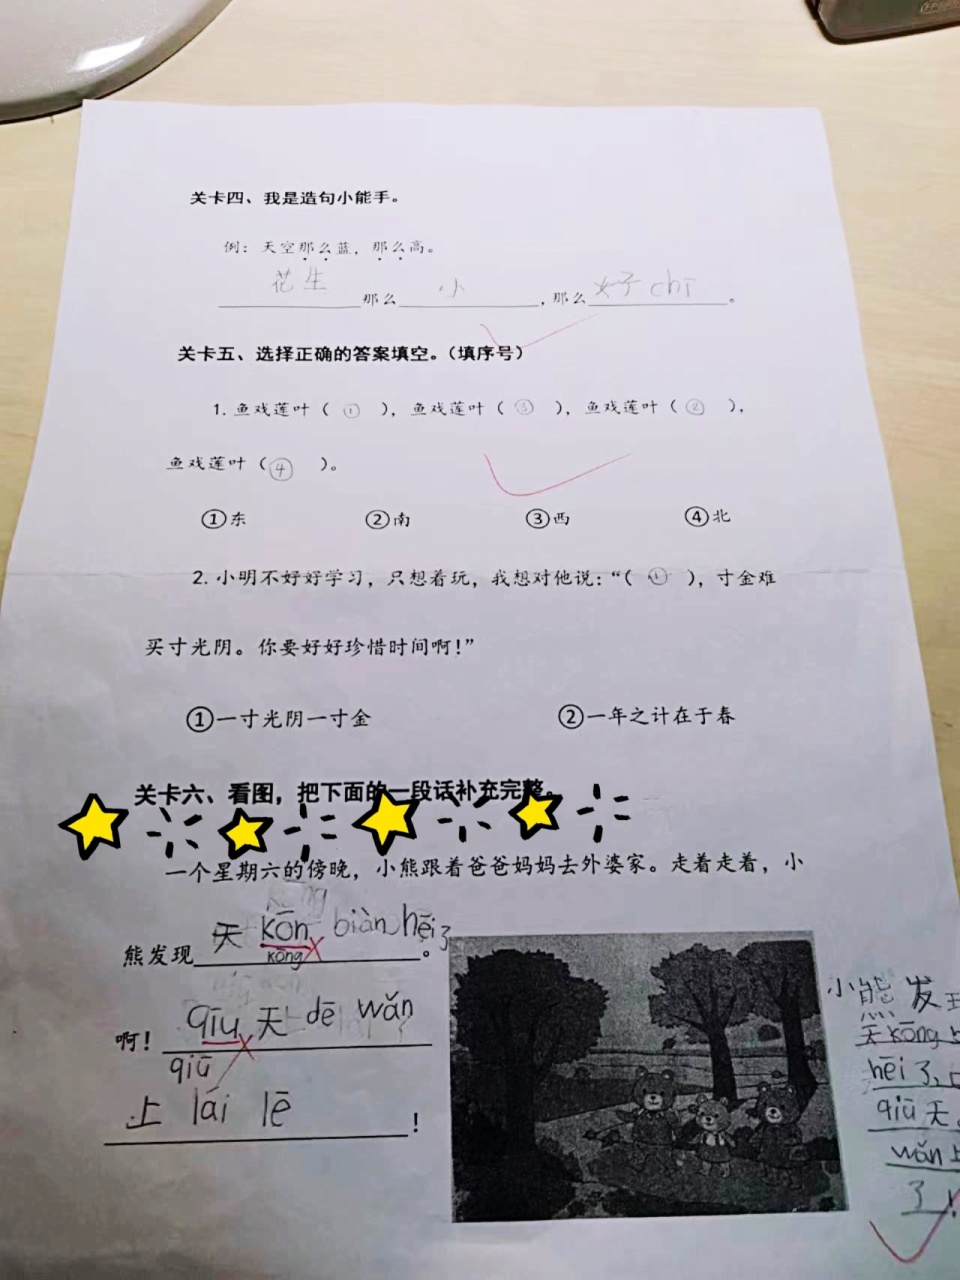 关卡四、我是造句小能手。
例：天空那么蓝，那么高。
花生那么小，那么好chī。
关卡五、选择正确的答案填空。（填序号）
1. 鱼戏莲叶（①），鱼戏莲叶（③），鱼戏莲叶（②），
鱼戏莲叶（④）。
①东 ②南 ③西 ④北
2. 小明不好好学习，只想着玩，我想对他说：“（①），寸金难
买寸光阴。你要好好珍惜时间啊！”
①一寸光阴一寸金 ②一年之计在于春
关卡六、看图，把下面的一段话补充完整。
一个星期六的傍晚，小熊跟着爸爸妈妈去外婆家。走着走着，小
熊发现天kōn biàn hēi了。
kōng
啊！qīu天dē wǎn
qiū
上lái lē！
小熊发现
天kōng
hēi了、
qiū天
wǎn上
了！